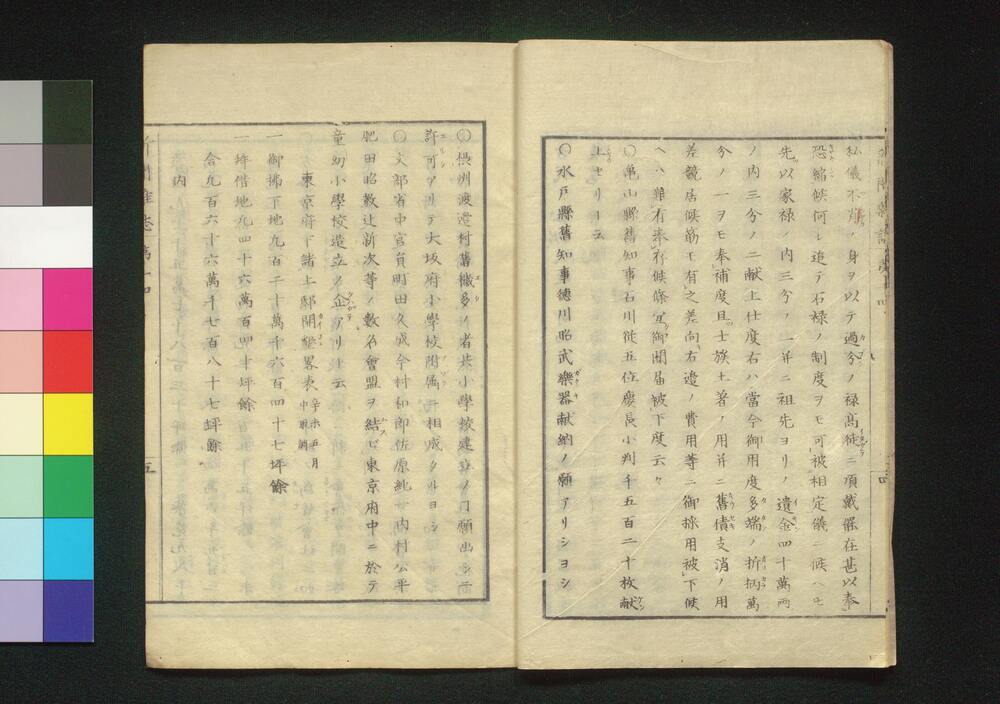 私儀不肖ノ身ヲ以テ過分ノ禄髙徒ニ頂戴罷在甚以奉
恐縮候何レ追テ石禄ノ制度ヲモ可被相定儀ニ候ヘ𪜈
先以家禄ノ内三分ノ一并ニ祖先ヨリノ遺金四十萬両
ノ内三分ノ二献上仕度右ハ當今御用度多端ノ折柄萬
分ノ一ヲモ奉補度且士族土着ノ用并ニ舊債支消ノ用
差競居候筋モ有之差向右邉ノ費用等ニ御採用被下候
ヘハ難有奉存候條宜御聞届被下度云々
〇亀山縣舊知事石川従五位慶長小判千五百二十枚献
上セリト云
〇水戸縣舊知事徳川昭武樂器献納ノ願アリシヨシ
〇摂州渡邉村舊穢多ノ者共小學校建立ノ
許可アリテ大坂府小學校附属ニ相成タルヨシ
〇文部省中官員町田久成今村和郎佐原純一内村公平
肥田昭敷辻新次等ノ數名會盟ヲ結ヒ東京府中ニ於テ
童幼小學校造立ノ企アリト云
東京府下諸上邸開墾畧表
一御拂下地九百二十萬千六百四十七坪餘
一坪借地九四十六萬百四十坪餘
合九百六十六萬千七百八十七坪餘
内